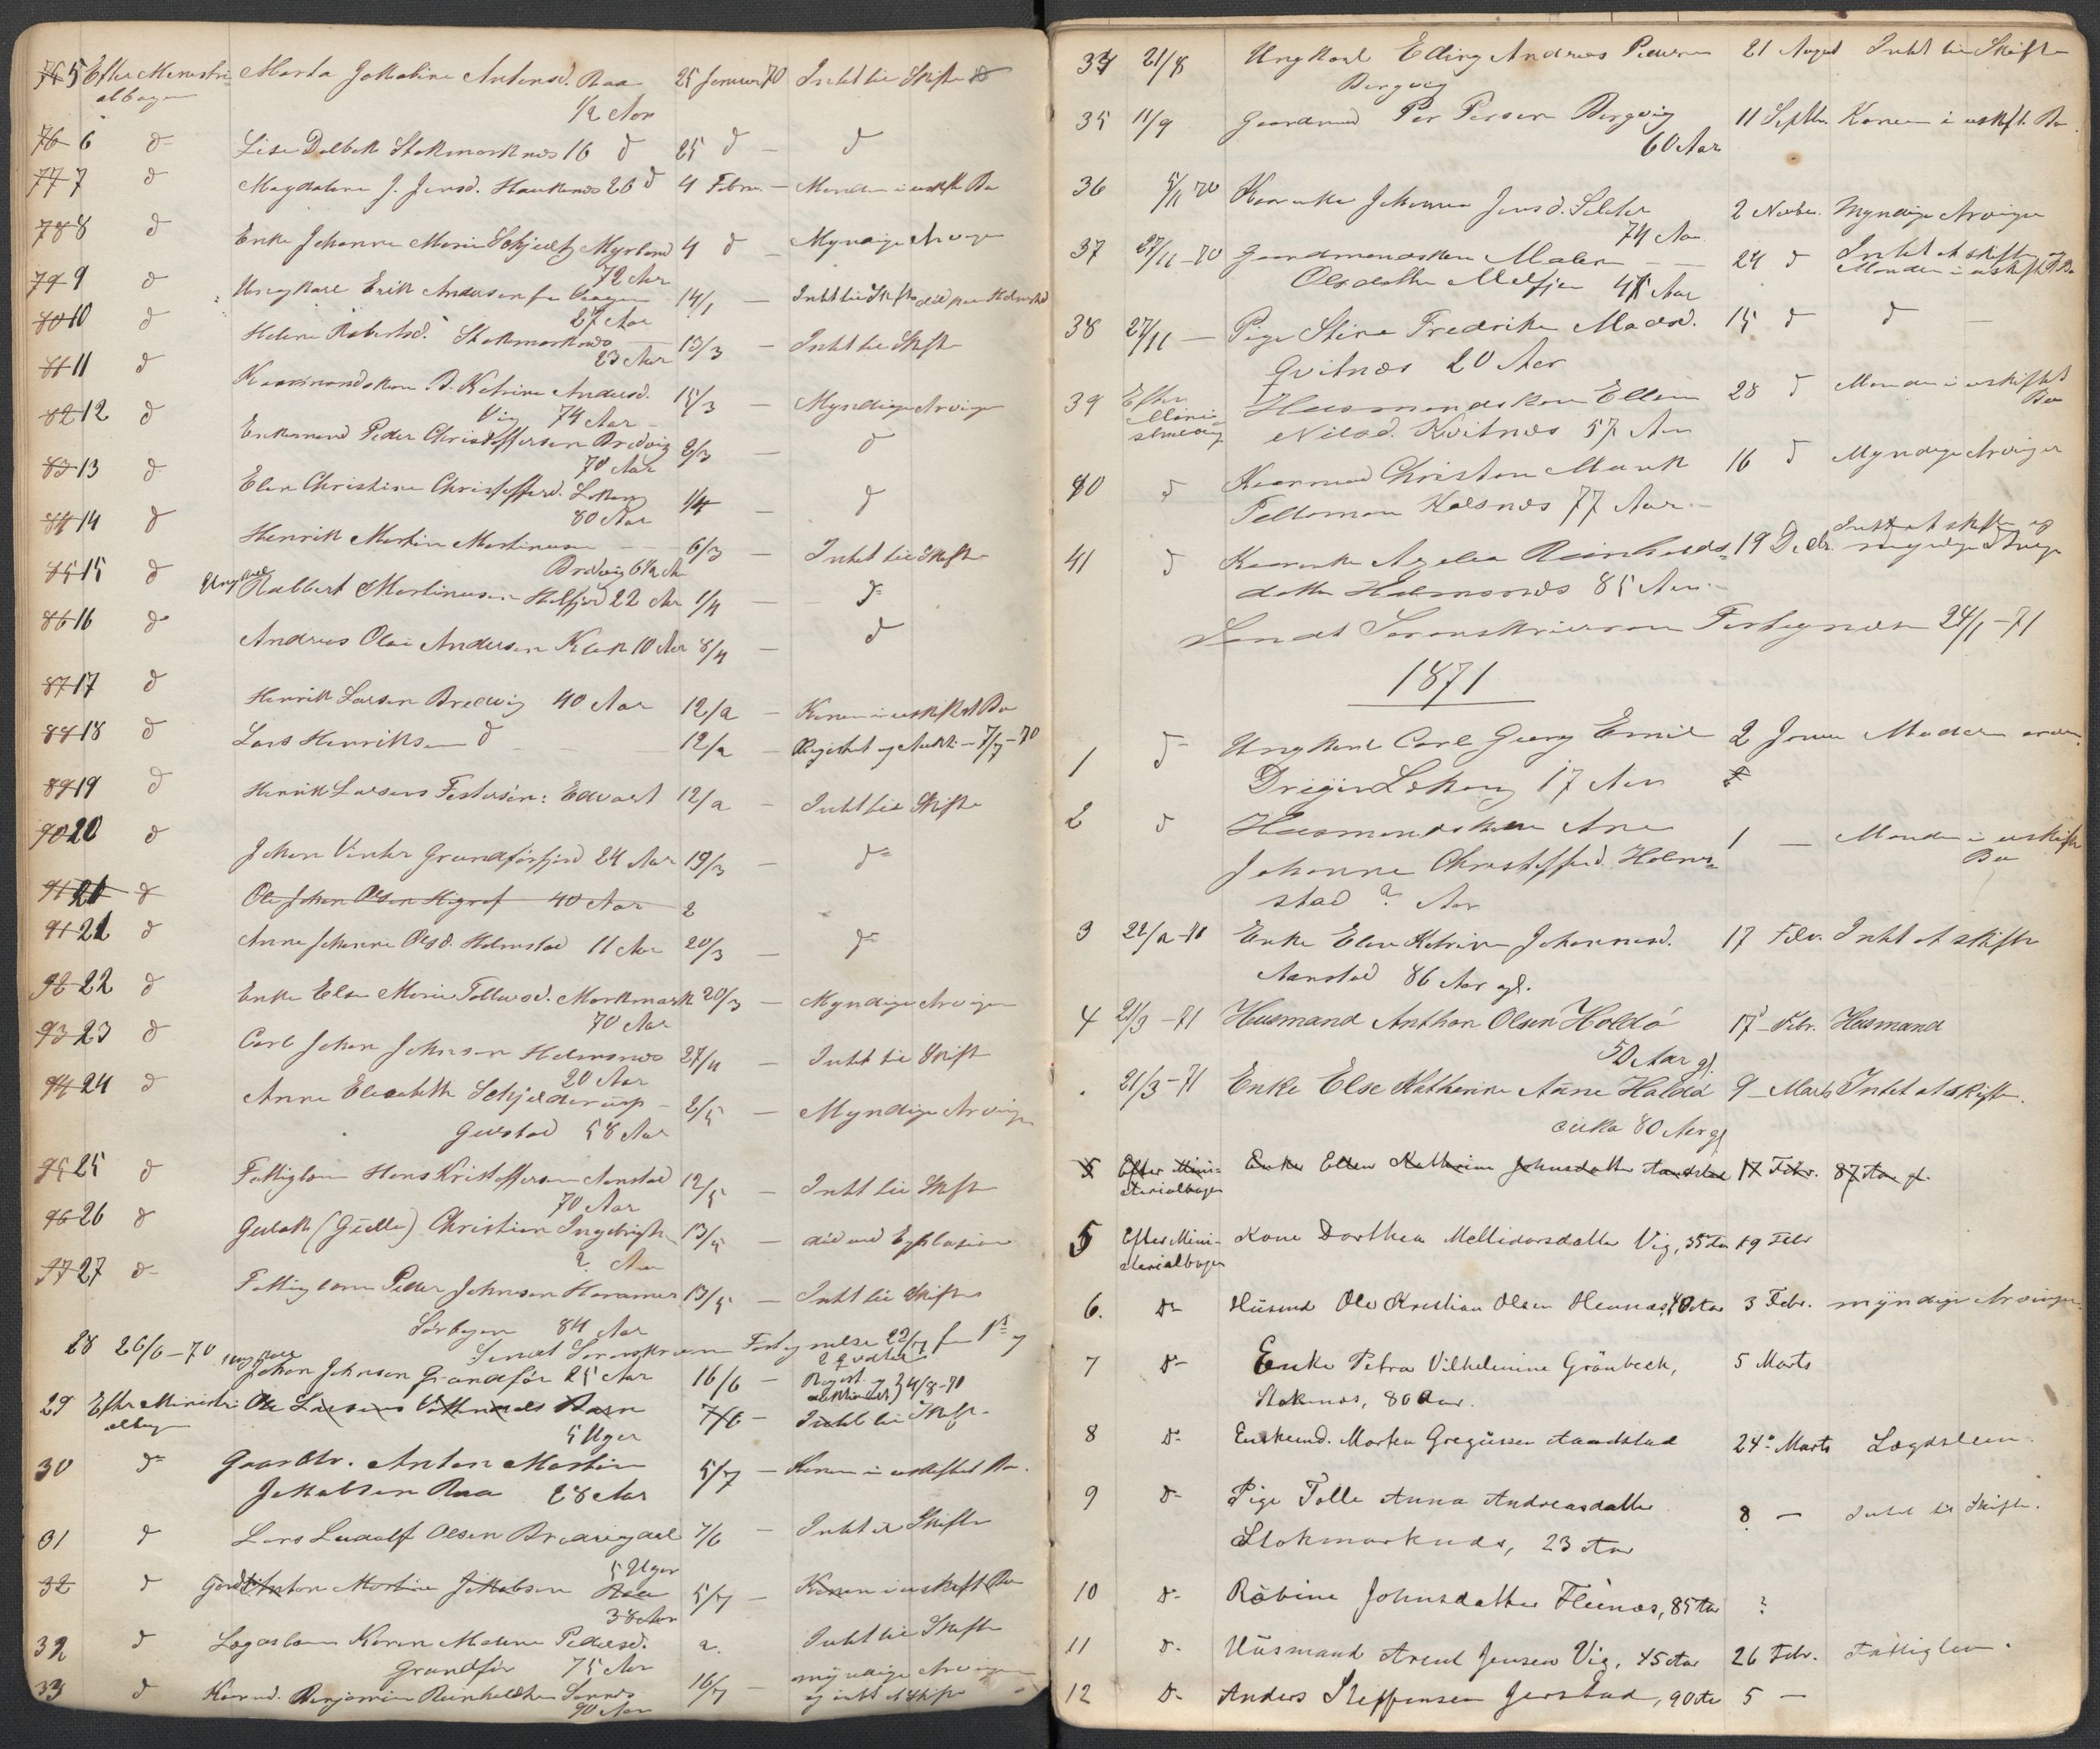 75 5 Efter Ministeri- Marta Jakobine Antonsd. Raa 25 Januar 70 Intet til Skifte
albogen 1/2 Aar
76 6 d Lise Dolbak Stokmarknæs 16 d 25 d — d
77 7 d Magdalena J. Jensd. Haukenæs 26 d 4 Febru. — Manden i uskift Bo
78 8 d Enke Johanna Marie Schjeltz Myrland 4 d — Myndige Arvinger
72 Aar
79 9 d Ungkarl Erik Andersen fra 14/1 — Intet til Skifte død paa
27 Aar
80 10 d Helene Robertsd. Stokmarknæs 13/3 — Intet til Skifte
23 Aar
81 11 d Kaarmandskone B. Katrine Andersd. 15/3 — Myndige Arvinger
Vig 74 Aar
82 12 d Enkemand Peder Christoffersen Bredvig 2/3 — d
70 Aar
83 13 d Elen Christine Christoffersd. 1/4 — d
80 Aar
84 14 d Henrik Martin Martinussen 6/3 — Intet til Skifte
Bredvig 6 1/2 Aar
85 15 d Ungkarl Rabbert Martinusen 22 Aar 1/4 — d
86 16 d Andreas Olai Andersen Klak 10 Aar 8/4 — d
87 17 d Henrik Larsen Bredvig 40 Aar 12/2 — Konen i uskiftet Bo
88 18 d Lars Henriksen d 12/2 — 7/7-70
89 19 d Henrik Larsens Fostersøn: Edvart 12/2 — Intet til Skifte
90 20 d Johan Vinter Grundførfjord 24 Aar 19/3 — d
91 21 d Ole Johan Olsen 40 Aar 2
91 21 d Anne Johanna Olsd. Holmstad 11 Aar 20/3 — d
92 22 d Enke Else Marie Tollevsd. Markmark 20/3 — Myndige Arvinger
70 Aar
93 23 d Carl Johan Johnsen Holmsnæs 27/4 — Intet til Skift
20 Aar
94 24 d Anne Elisabeth Schjelderup 2/5 — Myndige Arvinger
Guvstad 58 Aar
95 25 d Fattiglem Hans Kristoffersen Aanstad 12/5 — Intet til Skifte
70 Aar
96 26 d Gulak (Gjælle) Christian Ingebrigts. 13/5 — død ved Explosion
? Aar
97 27 d Fattiglem Peder Johnsen 13/5 — Intet til Skifte
Sørbyen 84 Aar
Sendt Sorenskriveren Fortegnelse 22/7 for 1ste og
28 26/6-70 Ungkarl Johan Johnsen Grundfør 25 Aar 16/6 — 2 qvartal
Regist. og 4/8-70
29 Efter Ministeri- Ole Larsens Raan 7/6 — Intet til Skift
albogen 5 Uger
30 d Gaardbr. Anton Martin 5/7 — Konen i uskiftet Bo.
Jakobsen Raa 28 Aar
31 d Lars Ludolf Olsen Bredvigdal 7/6 — Intet til Skifte
5 Uger
32 d Gaardbr. Anton Martin Jakobsen Raa 5/7 — Konen i uskift Bo
38 Aar
32 d Lægdslem Karen Malene Pedersd. 2. Intet til Skifte
Grundfør 75 Aar
33 d Kaarmd. Benjamin Reinholdtsen 16/7 — myndige Arvinger
90 Aar og intet at skifte
34 21/8 Ungkarl Elling Andreas Pedersen 21 August Intet til Skifte
Bergvig
35 11/9 Gaardmand Per Persen Bergvig 11 Septbr. Konen i uskift. Bo
60 Aar
36 5/11 70 Kaarenke Johanna Jensd. 2 Novbr. Myndige Arvinger
74 Aar
37 27/11-70 Gaardmandskone Malen — 24 d Intet at skifte og
Olsdatter Melfjen 45 Aar Manden i uskiftet Bo
38 27/11 — Pige Stine Fredrike Madsd. 15 d d —
Qvitnæs 20 Aar
39 Efter Husmandskone Ellen 28 d Manden i uskiftet
Ministerialbog Nilsd. Kvitnæs 57 Aar Bo
40 d Kaarmand Christen Mark 16 d Myndige Arvinger
Tollomon 77 Aar
41 d Kaarenke Reinholds- 19 Decbr. Intet at skifte og
datter Holmsnæs 85 Aar myndige Arvinger
Sendt Sorenskriveren Fortegnelse 24/1-71
1871
1 d Ungkarl Carl Georg Emil 2 Januar Moderen
Dreyer 17 Aar
2 d Husmandskone Ane 1 — Manden i uskiftet
Johanne Christoffersd. Holm- Bo
stad ? Aar
3 22/2-71 Enke Elen Katrine Johannesd. 17 Febr. Intet at skifte
Aanstad 86 Aar gl.
4 21/3-71 Husmand Anthon Olsen Holdö 17 Febr. Husmand
50 Aar gl.
. 21/3-71 Enke Else Katherine Anne Haldö 9 — Marts Intet at skifte.
cirka 80 Aar gl
5 Efter Mini- Enke Ellen Katherine Johnsdatter Aanstad 17 Febr. 87 Aar gl.
sterialbogen
5 Efter Mini- Kone Dorthea Mellidorsdatter Vig, 35 Aar 19 Febr
sterialbogen
6. d Husmd Ole Kristian Olsen Hennæs, 40 Aar 3 Febr. myndige Arvinger.
7 d Enke Petra Vilhelmine Grönbeck, 5 Marts
Stoknæs, 80 Aar.
8 d Enkemd. Morten Gregussen Aandstad 24de Marts Lægdslem
9 d Pige Tolle Anna Andreasdatter 8 — Intet til Skifte.
Stokmarknæs, 23 Aar
10 d Rabine Johnsdatter Fleinæs, 85 Aar ?
11 d Husmand Arent Jensen Vig, 45 Aar 26 Febr. Fattiglem.
12 d Anders Steffensen Guvstad, 90 Aar 5 —